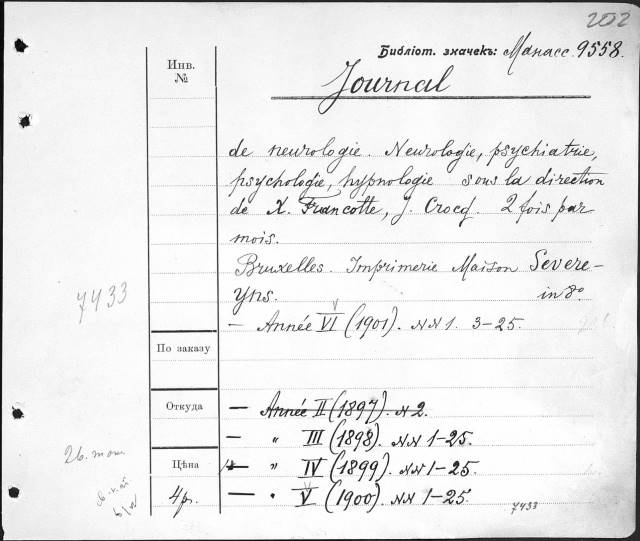 202
Библіот. значекъ: Манасс. 9558.
Инв.
№
Journal
de neurologie. Neurologie, psychiatrie,
psychologie, hypnologie sous la direction
de X. Francotte, J. Crocq. 2 fois par
mois.
Bruxelles. Imprimerie Maison Severe-
yns. in 8°.
7433
— Année VI (1901). NN 1. 3-25.
По заказу
Откуда
— Année II (1897). N 2.
— " III (1898). NN 1-25.
Цѣна
— " IV (1899). NN 1-25.
4 р.
— " V (1900). NN 1-25.
7433